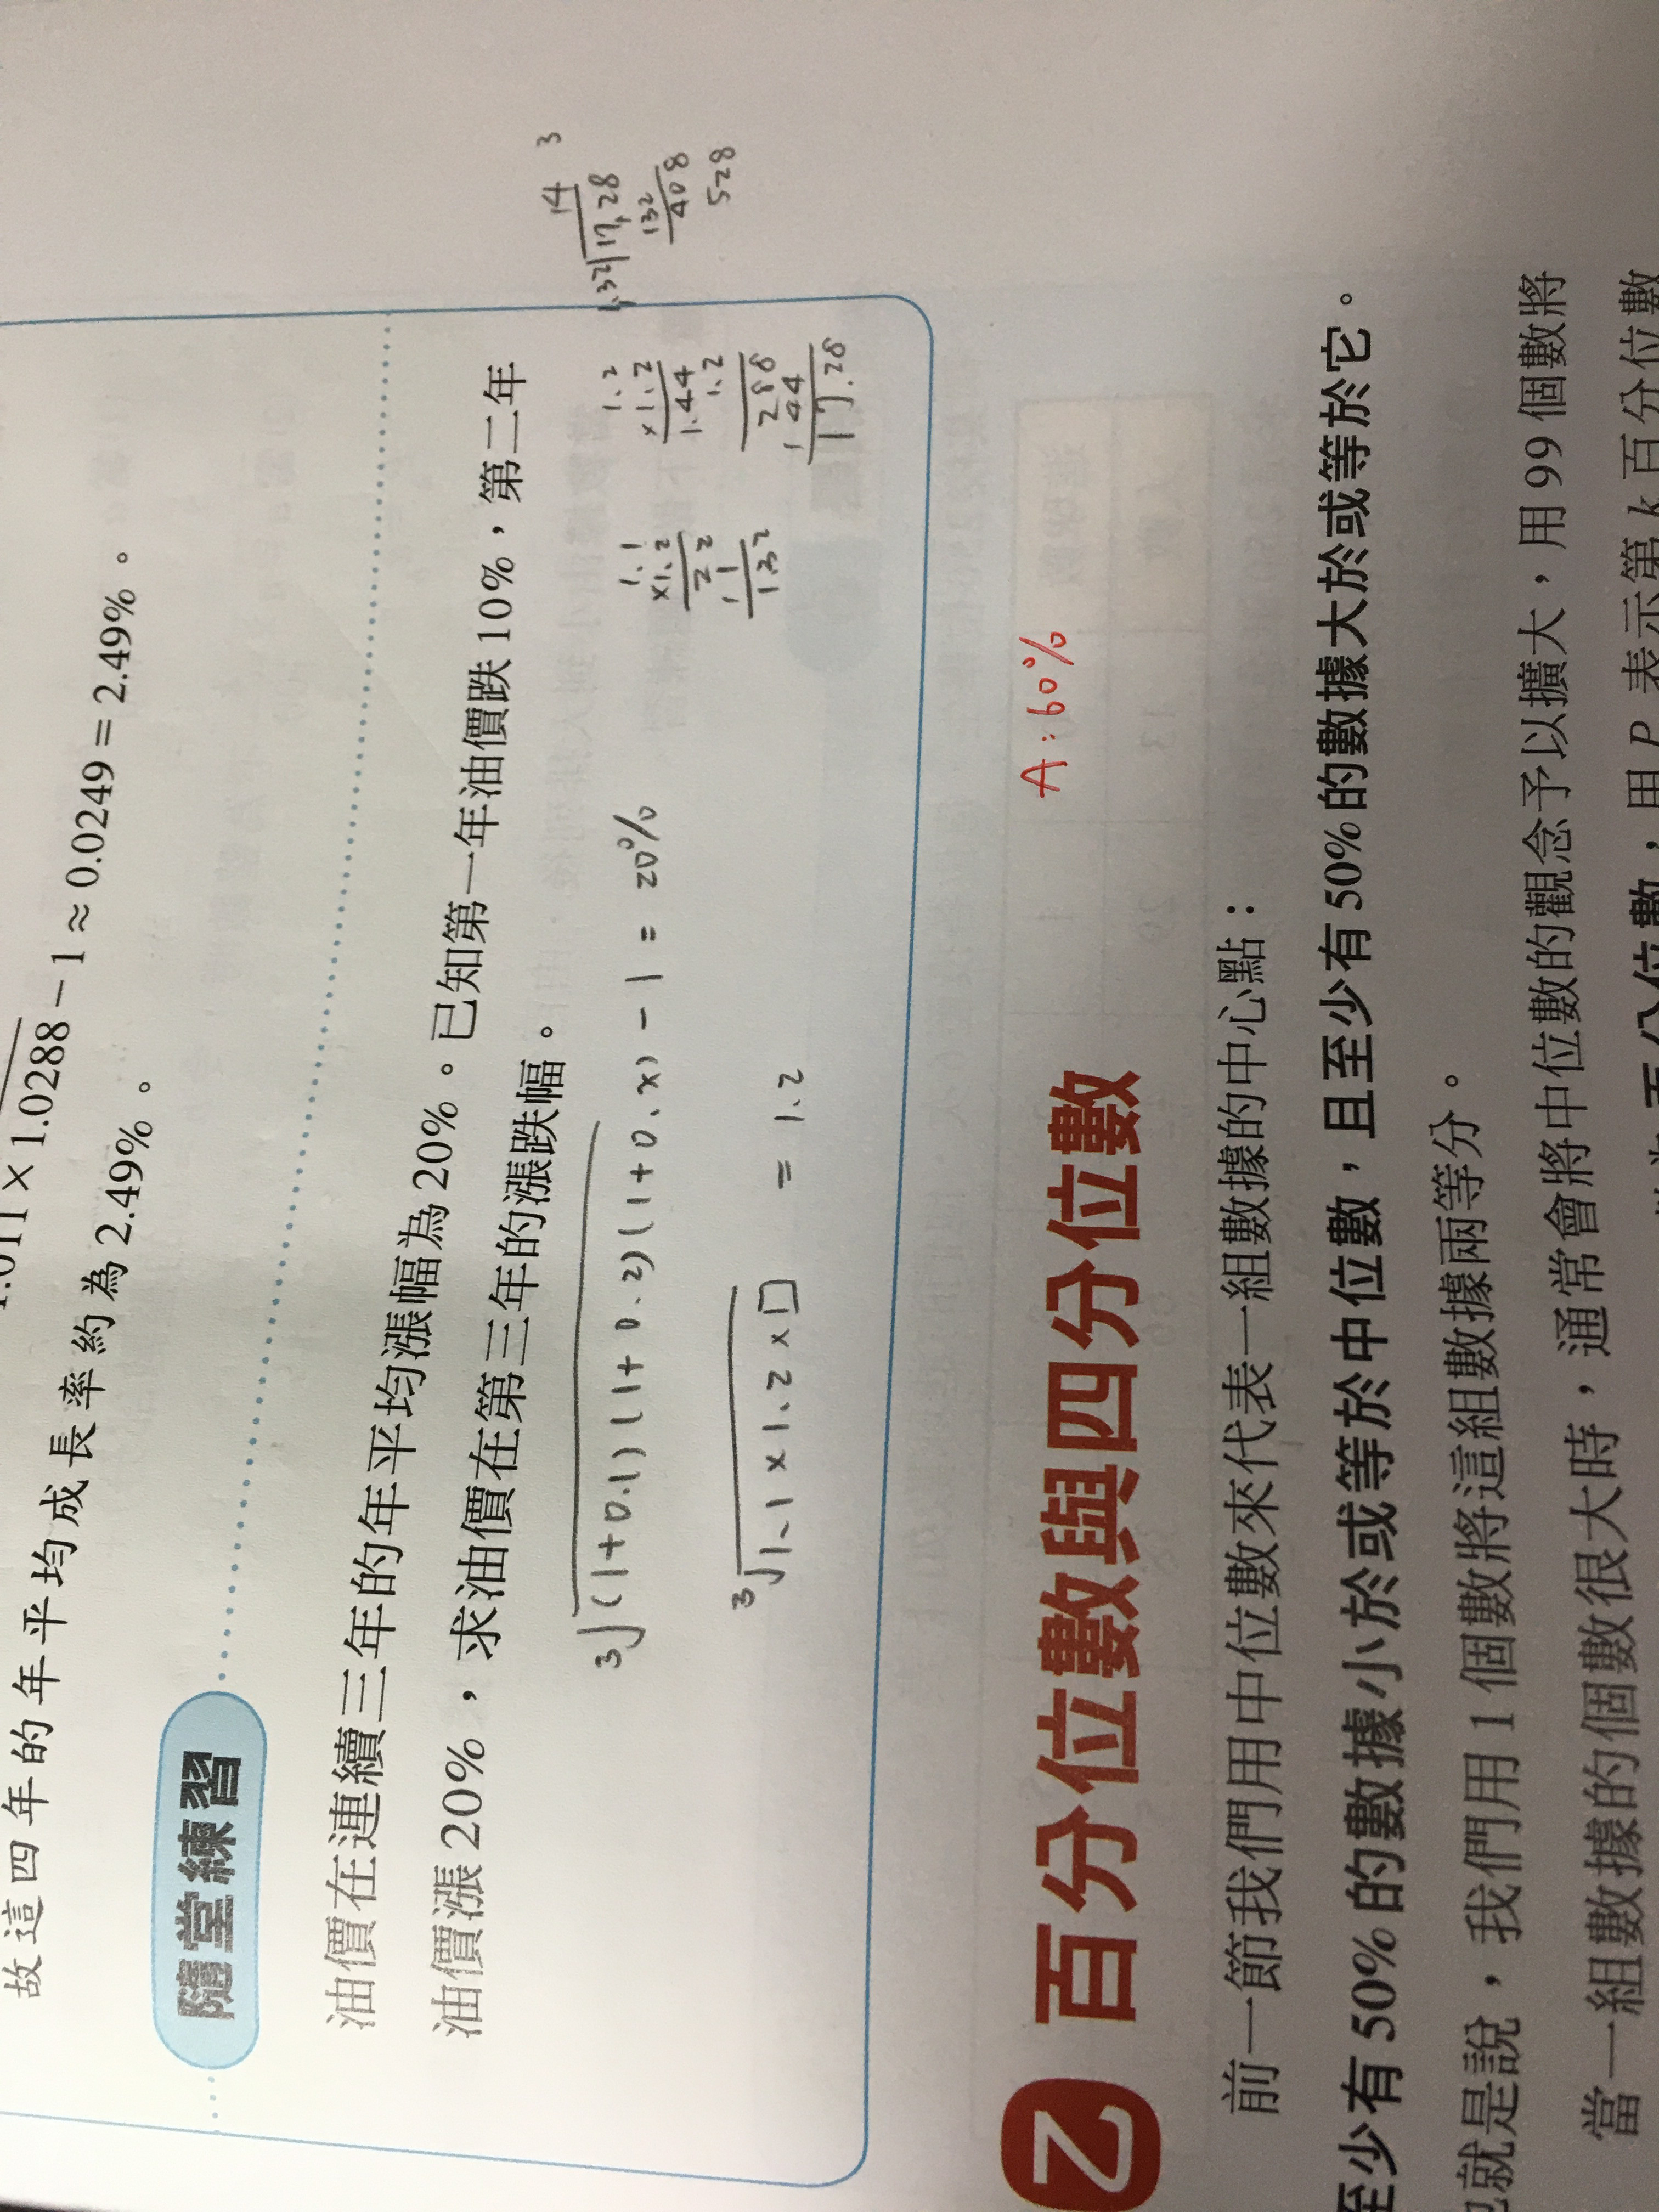 1.011 × 1.0288 − 1 ≈ 0.0249 = 2.49%。
故這四年的年平均成長率約為 2.49%。
隨堂練習
油價在連續三年的年平均漲幅為 20%。已知第一年油價跌 10%，第二年
油價漲 20%，求油價在第三年的漲跌幅。
3√(1+0.1)(1+0.2)(1+0.x) - 1 = 20%
3√1.1×1.2×□ = 1.2
1.1
×1.2
22
11
132
1.2
×1.2
1.44
1.2
288
144
17.28
14
3
1.32 17.28
132
408
528
A:60%
乙 百分位數與四分位數
前一節我們用中位數來代表一組數據的中心點：
至少有 50% 的數據小於或等於中位數，且至少有 50% 的數據大於或等於它。
就是說，我們用 1 個數將這組數據兩等分。
當一組數據的個數很大時，通常會將中位數的觀念予以擴大，用 99 個數將
百分位數，用 P 表示第 k 百分位數